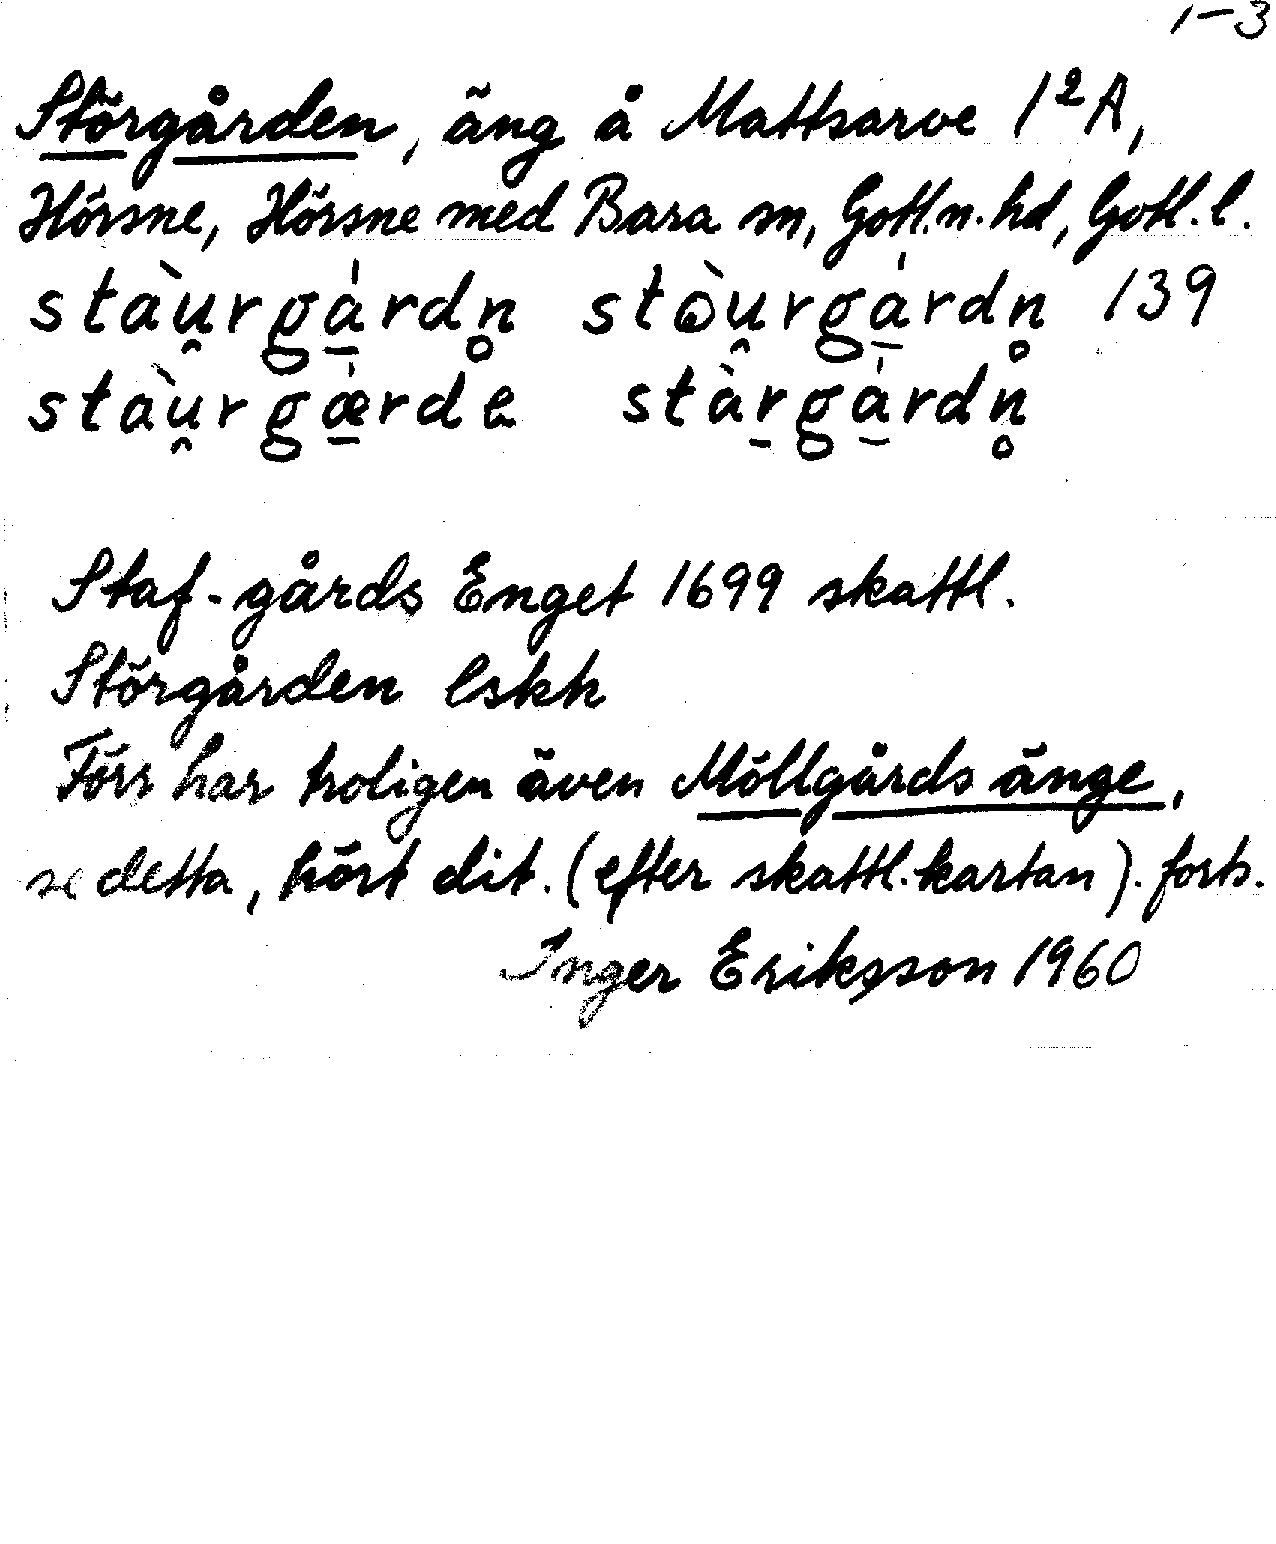 1-3
Störgården, äng å Mattsarve 1²A,
Hörsne, Hörsne med Bara sn, Gotl.n.hd, Gotl.l.
stàu̯rgá̱rdn̥ stòu̯rgá̱rdn̥ 139
stàu̯rgǽ̱rde stàr̠gá̱rdn̥
Staf-gårds Enget 1699 skattl.
Störgården lskh
Förr har troligen även Möllgårds änge,
se detta, hört dit. (efter skattl.kartan). forts.
Inger Eriksson 1960